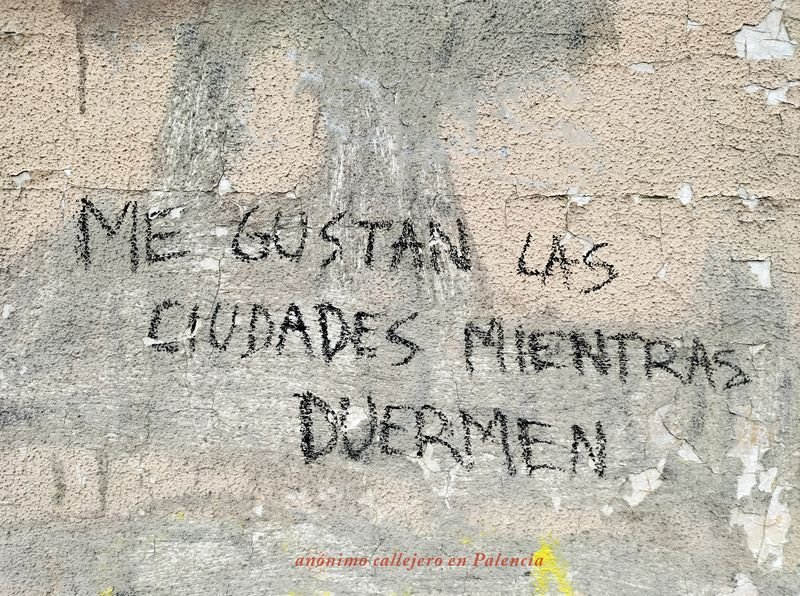 ME GUSTAN LAS
CIUDADES MIENTRAS
DUERMEN
anónimo callejero en Palencia